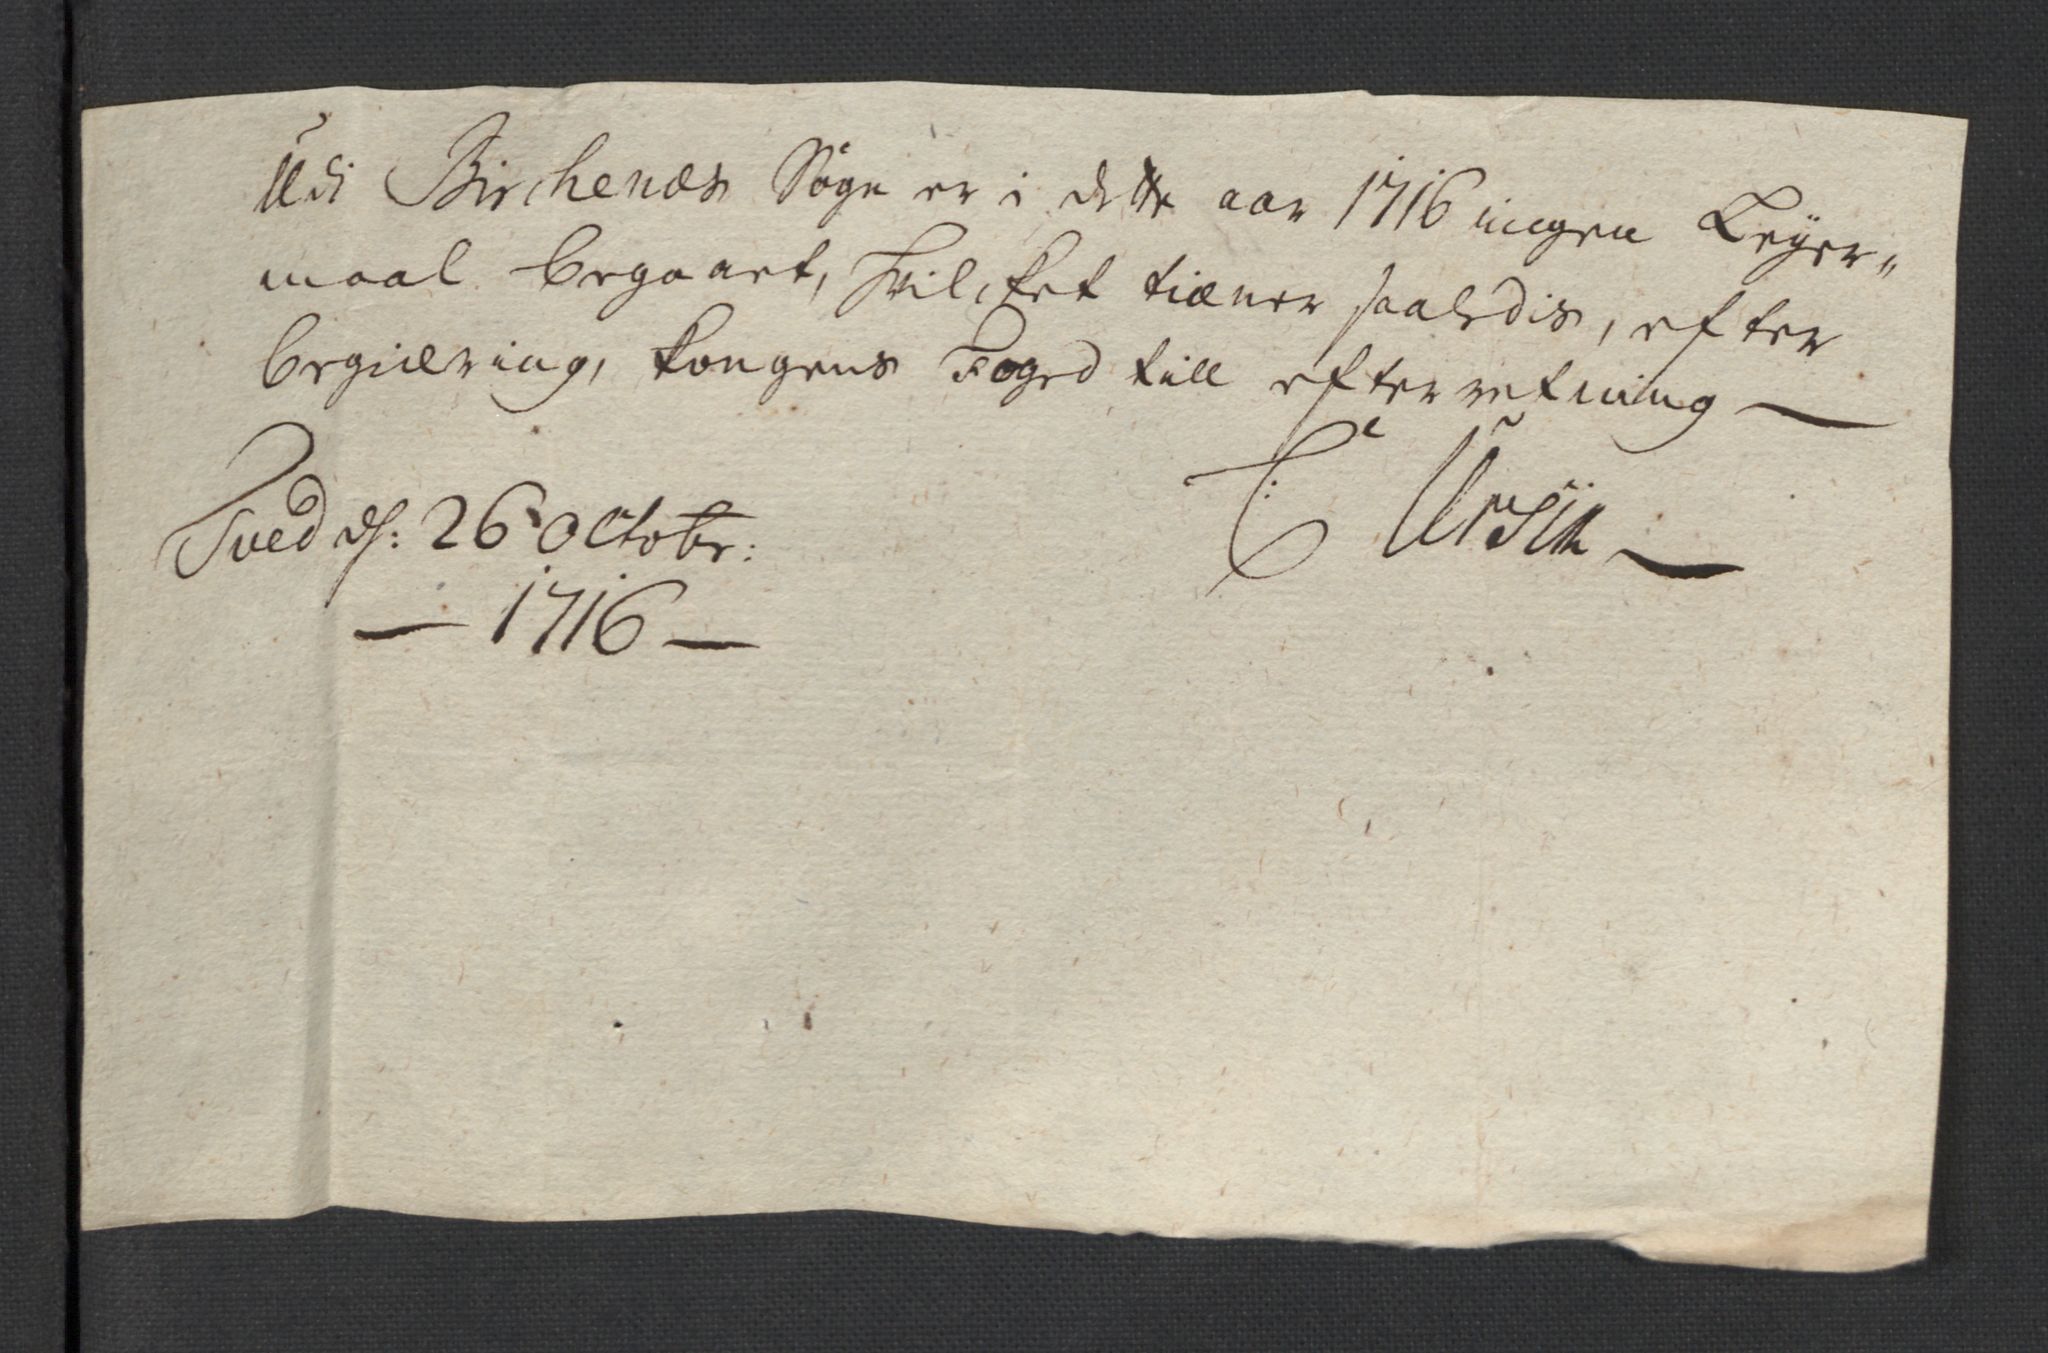 Udi Birchenæs Sogn er i dette aar 1716 ingen Leyer„
maal begaaet, hvilcket tiæner saaledis, efter
begiæring, kongens Foged till efterretning —
C: Ursin —
Tved d: 26 Octobr:
— 1716 —